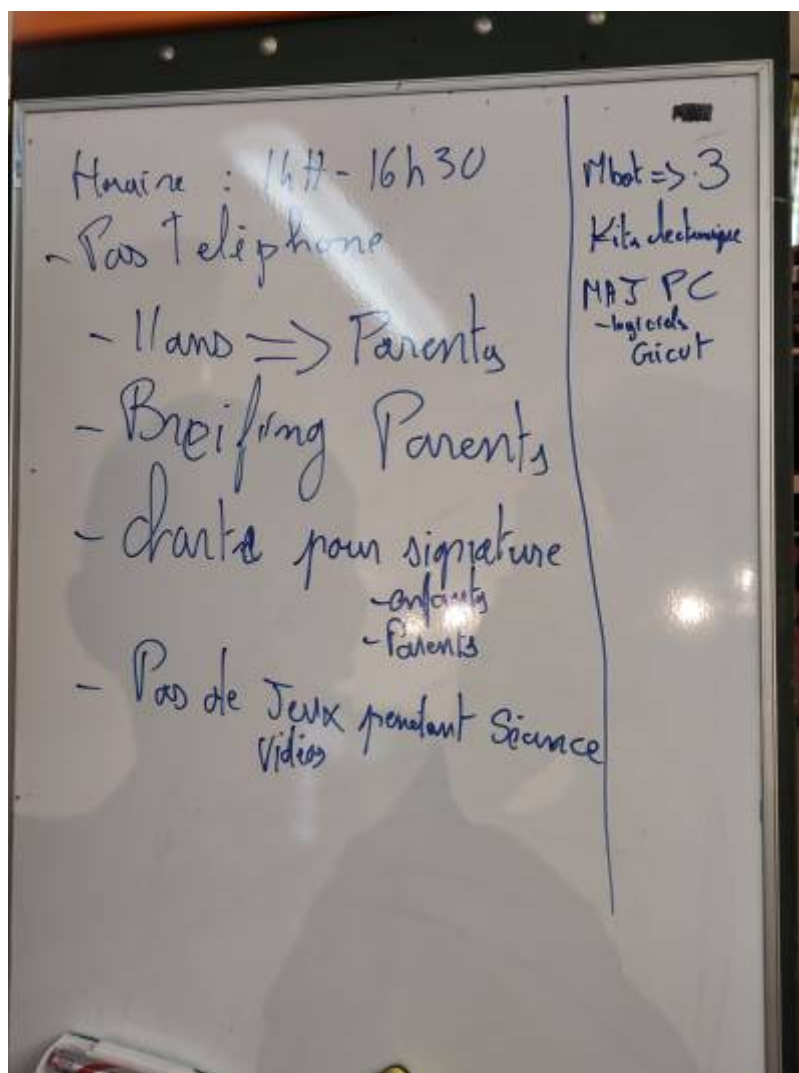 Horaire : 14H - 16h30
- Pas Teléphone
- 11ans => Parents
- Breifing Parents
- Charte pour signature
- enfants
- Parents
- Pas de Jeux pendant Séance
Vidéos
Mbot => 3
Kits électronique
MAJ PC
- logiciels